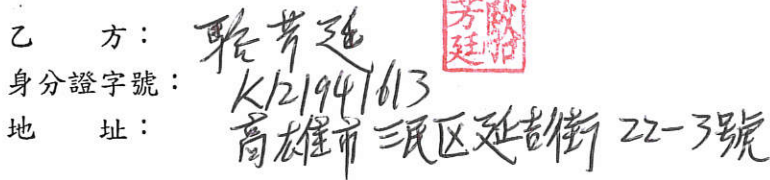 乙方：芳廷
芳廷
身分證字號：K121941613
地址：高雄市三民区延吉街 22-3號